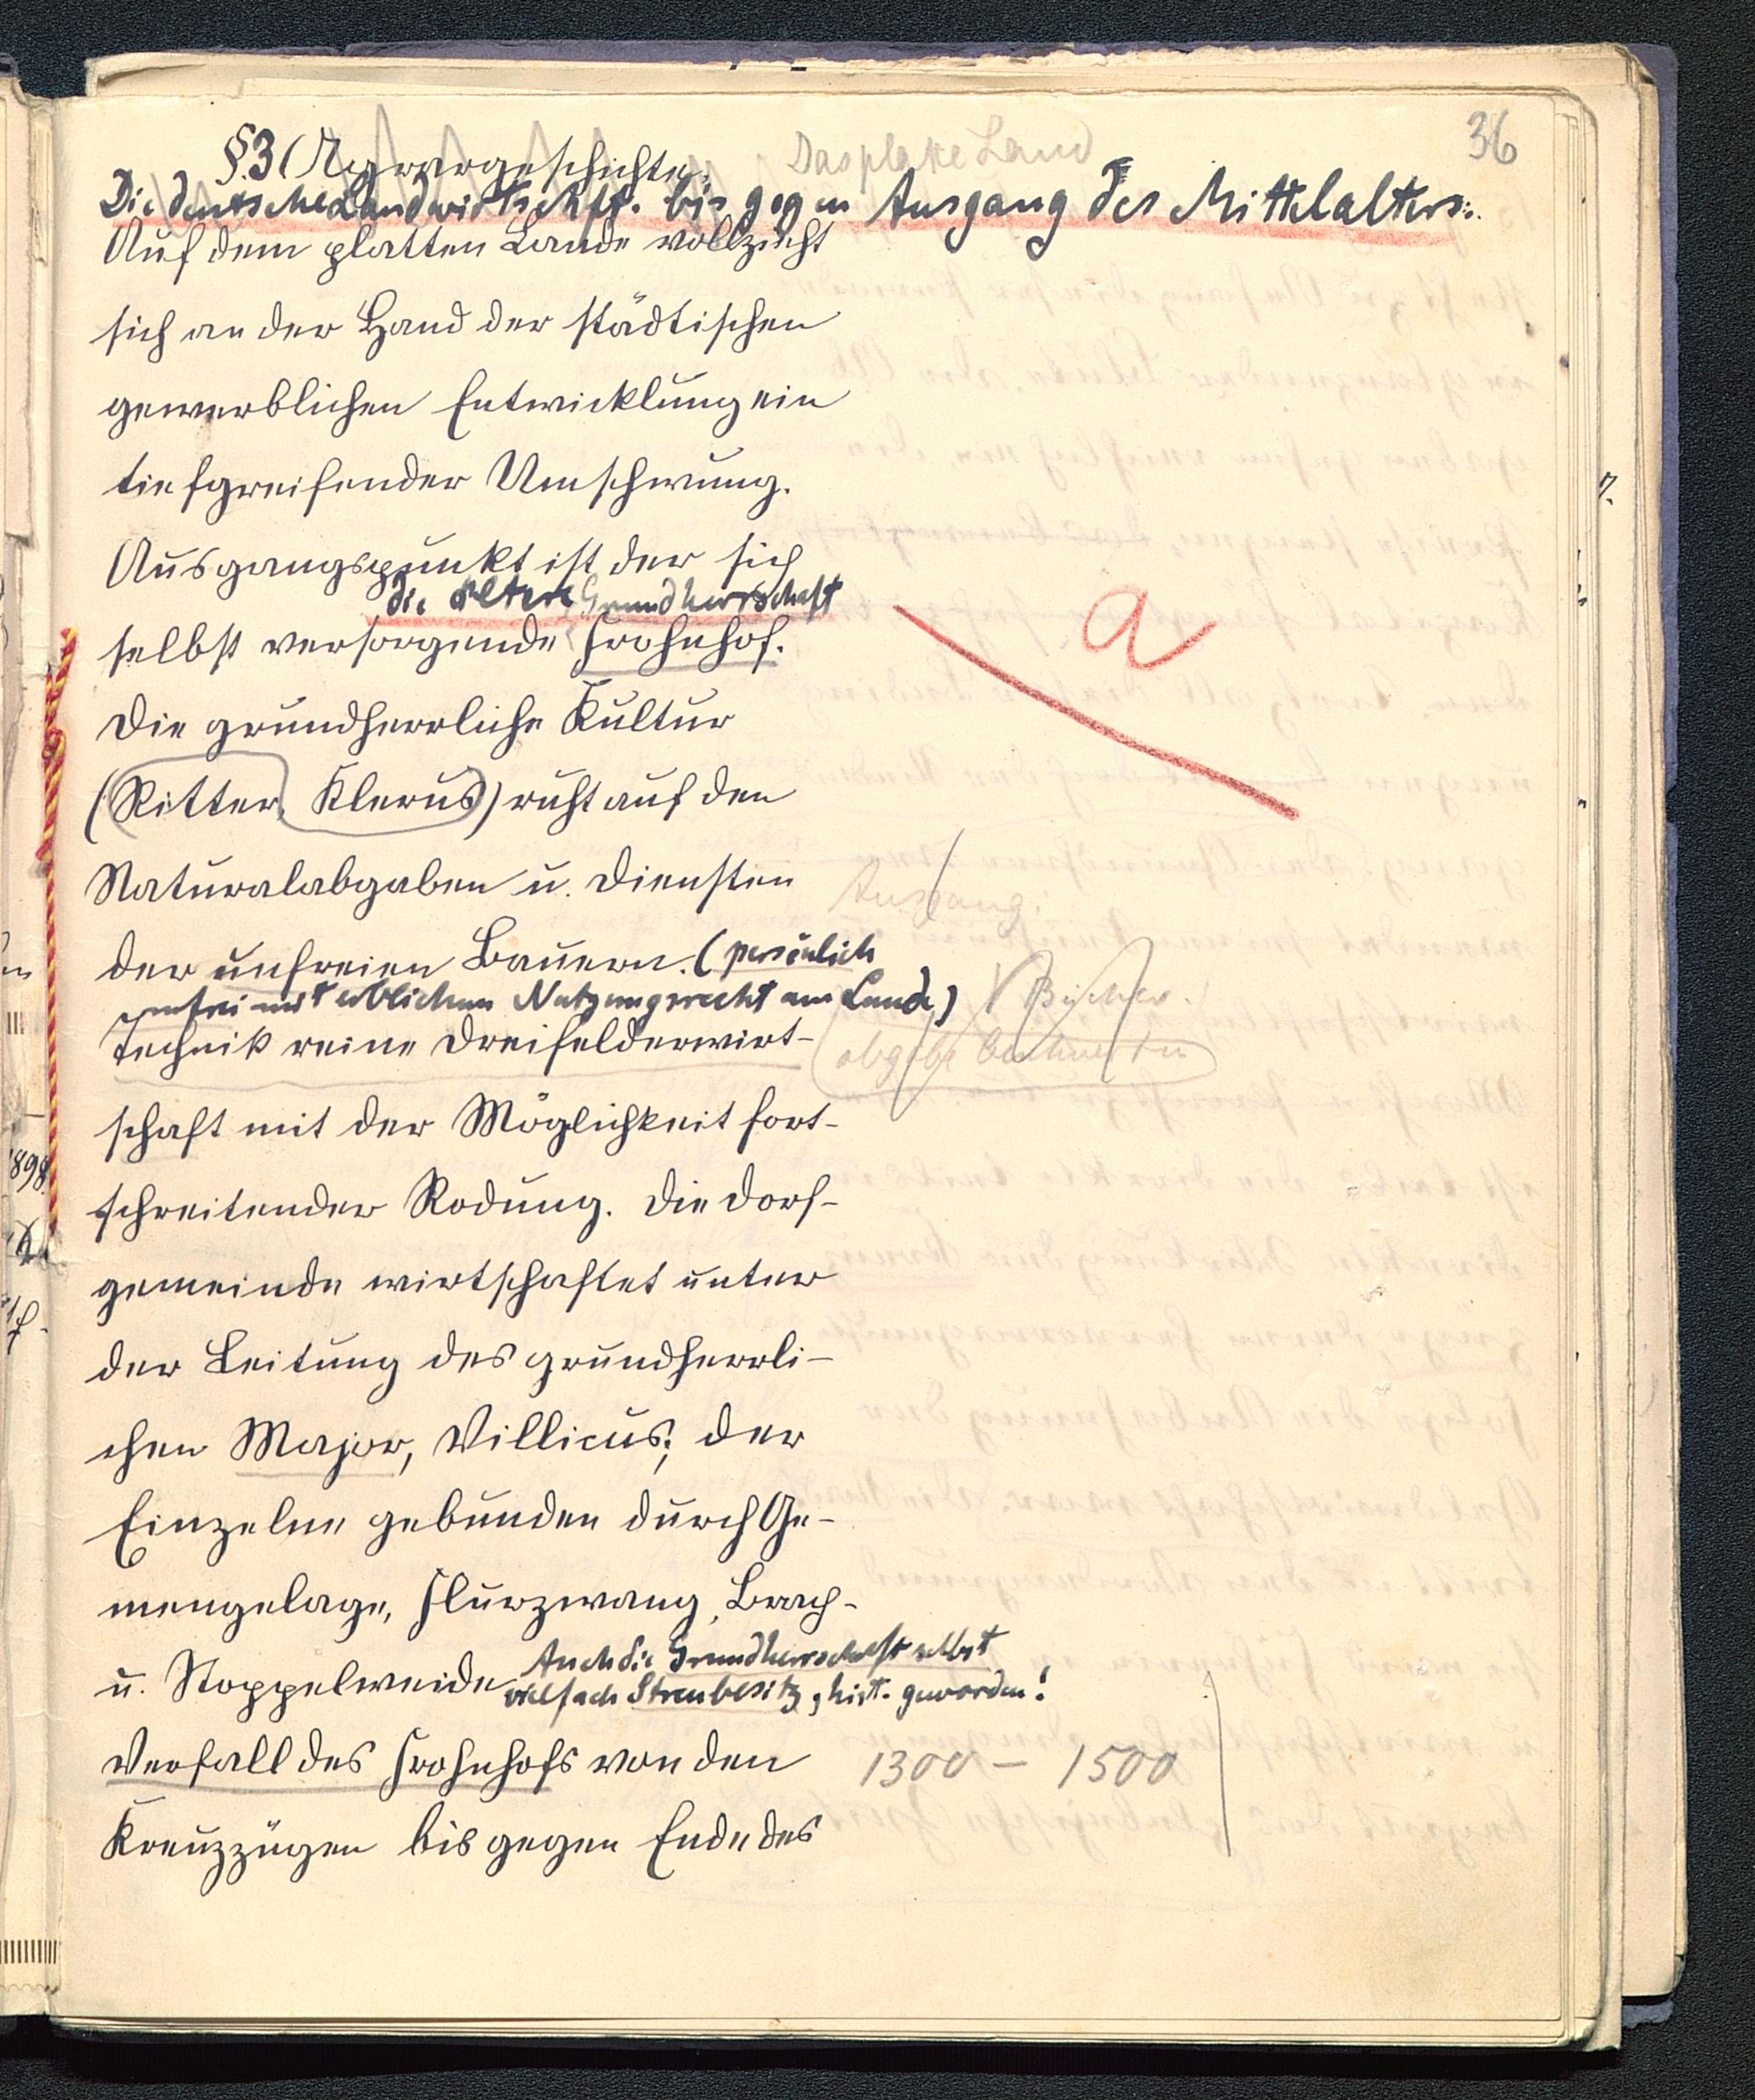 36
§.3 (Agrargeschichte.
Das platte Land
Die deutsche Landwirtschaft. bis gegen Ausgang des Mittelalters:.
Auf dem platten Lande vollzieht
sich an der Hand der städtischen
gewerblichen Entwicklung ein
tiefgreifender Umschwung.
Ausgangspunkt ist der sich
die ältere Grundherrschaft
selbst versorgende Frohnhof.
a
Die grundherrliche Kultur
(Ritter, Klerus) ruht auf den
Naturalabgaben u. Diensten
Ausgang.
der unfreien Bauern. (persönlich
unfrei mit erblichem Nutzungsrecht am Lande)
Bücher.
Technik reine Dreifelderwirt-
abgabe
schaft mit der Möglichkeit fort-
schreitender Rodung. Die Dorf-
gemeinde wirtschaftet unter
der Leitung des grundherrli-
chen Major, Villicus; der
Einzelne gebunden durch Ge-
mengelage, Flurzwang, Brach-
Auch die Grundherrschaft selbst
u. Stoppelweide
vielfach Streubesitz, hist. geworden!
Verfall des Frohnhofs von den
1300 – 1500
Kreuzzügen bis gegen Ende des